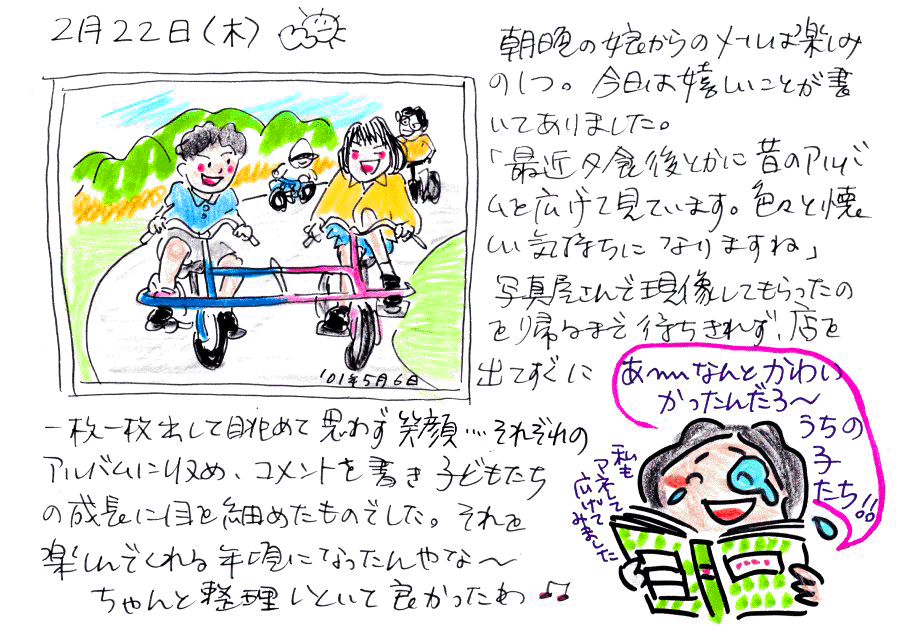 2月22日(木)
朝晩の娘からのメールは楽しみ
の1つ。今日は嬉しいことが書
いてありました。
「最近夕食後とかに昔のアルバ
ムを広げて見ています。色々と懐し
い気持ちになりますね」
写真屋さんで現像してもらったの
を帰るまで待ちきれず、店を
出てすぐに
一枚一枚出して眺めて思わず笑顔…それぞれの
アルバムに収め、コメントを書き子どもたち
の成長に目を細めたものでした。それを
楽しんでくれる年頃になったんやな〜
ちゃんと整理しといて良かったわ♫
'01年5月6日
あ〜なんとかわい
かったんだろ〜
うちの
子
たち!!
私も
マネして
広げて
みました